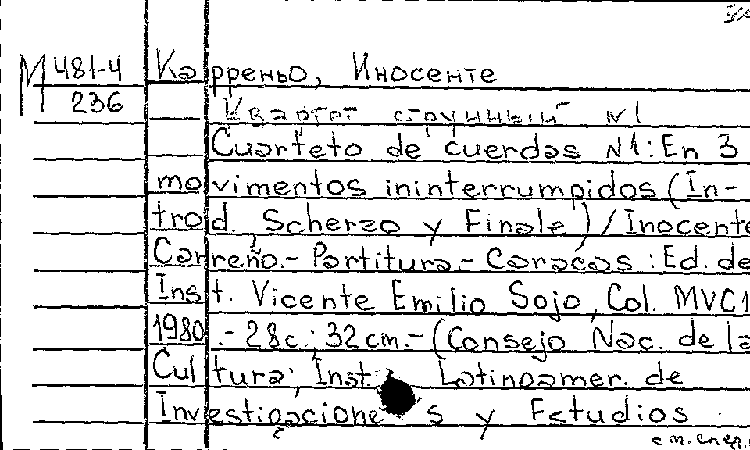 М 481-4
236
Карреньо, Иносенте
Квартет струнный N1
Cuarteto de cuerdas N1: En 3
movimentos ininterrumpidos (In-
trod. Scherzo y Finale) / Inocente
Carreño.- Partitura.- Caracas : Ed. de
Inst. Vicente Emilio Sojo, Col. MVC1
1980.- 28c.; 32cm.- (Consejo Nac. de la
Cultura; Inst. Latinoamer. de
Investigaciones y Estudios
см. след.